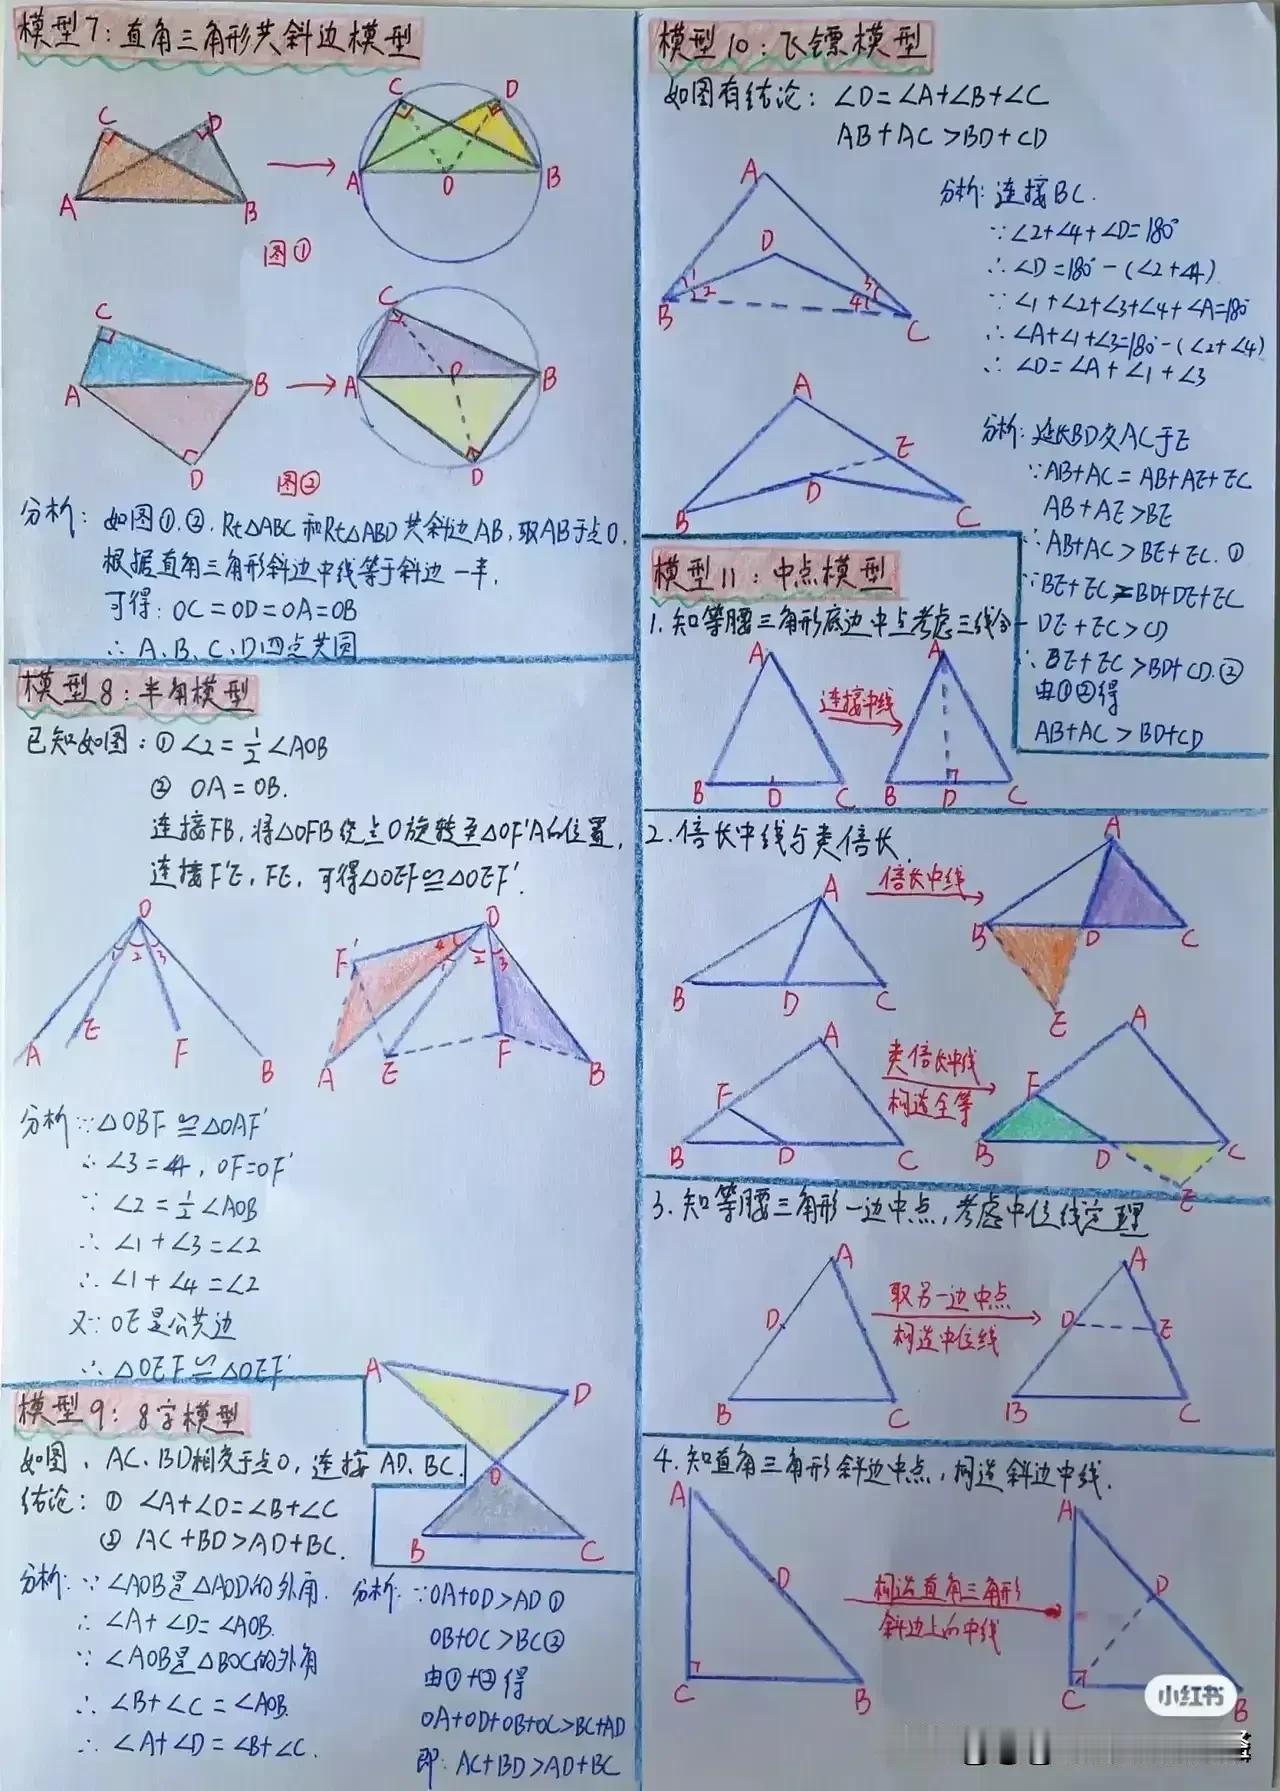 模型7：直角三角形共斜边模型
C
D
A
B
图①
C
D
A
O
B
C
A
B
D
图②
C
A
O
B
D
分析：如图①、②，Rt△ABC和Rt△ABD共斜边AB，取AB于点O，
根据直角三角形斜边中线等于斜边一半，
可得：OC=OD=OA=OB
∴A、B、C、D四点共圆
模型8：半角模型
已知如图：①∠2=1/2∠AOB
②OA=OB.
连接FB，将△OFB绕点O旋转至△OF'A的位置，
连接F'E，FE，可得△OEF≌△OEF'.
O
1 2 3
A
E
F
B
O
F'
4
1 2 3
A
E
F
B
分析∵△OBF≌△OAF'
∴∠3=∠4，OF=OF'
∵∠2=1/2∠AOB
∴∠1+∠3=∠2
∴∠1+∠4=∠2
又∵OE是公共边
∴△OEF≌△OEF'
模型9：8字模型
如图，AC、BD相交于点O，连接AD、BC.
结论：①∠A+∠D=∠B+∠C
②AC+BD>AD+BC.
A
D
O
B
C
分析：∵∠AOB是△AOD的外角.
∴∠A+∠D=∠AOB.
∵∠AOB是△BOC的外角
∴∠B+∠C=∠AOB.
∴∠A+∠D=∠B+∠C.
分析：∵OA+OD>AD①
OB+OC>BC②
由①+②得
OA+OD+OB+OC>BC+AD
即：AC+BD>AD+BC
模型10：飞镖模型
如图有结论：∠D=∠A+∠B+∠C
AB+AC>BD+CD
A
D
B
1
2
3
4
C
分析：连接BC.
∵∠2+∠4+∠D=180°
∴∠D=180°-(∠2+∠4)
∵∠1+∠2+∠3+∠4+∠A=180°
∴∠A+∠1+∠3=180°-(∠2+∠4)
∴∠D=∠A+∠1+∠3
A
E
D
B
C
分析：延长BD交AC于E
∵AB+AC=AB+AE+EC
AB+AE>BE
∴AB+AC>BE+EC.①
∵BE+EC=BD+DE+EC
DE+EC>CD
∴BE+EC>BD+CD.②
由①②得
AB+AC>BD+CD
模型11：中点模型
1.知等腰三角形底边中点考虑三线合一
A
B
D
C
连接中线
A
B
D
C
2.倍长中线与类倍长.
A
B
D
C
倍长中线
A
B
D
C
E
A
F
B
D
C
类倍长中线
构造全等
A
F
B
D
C
E
3.知等腰三角形一边中点，考虑中位线定理
A
D
B
C
取另一边中点
构造中位线
A
D
E
B
C
4.知直角三角形斜边中点，构造斜边中线.
A
D
C
B
构造直角三角形
斜边上的中线
A
D
C
B
小红书